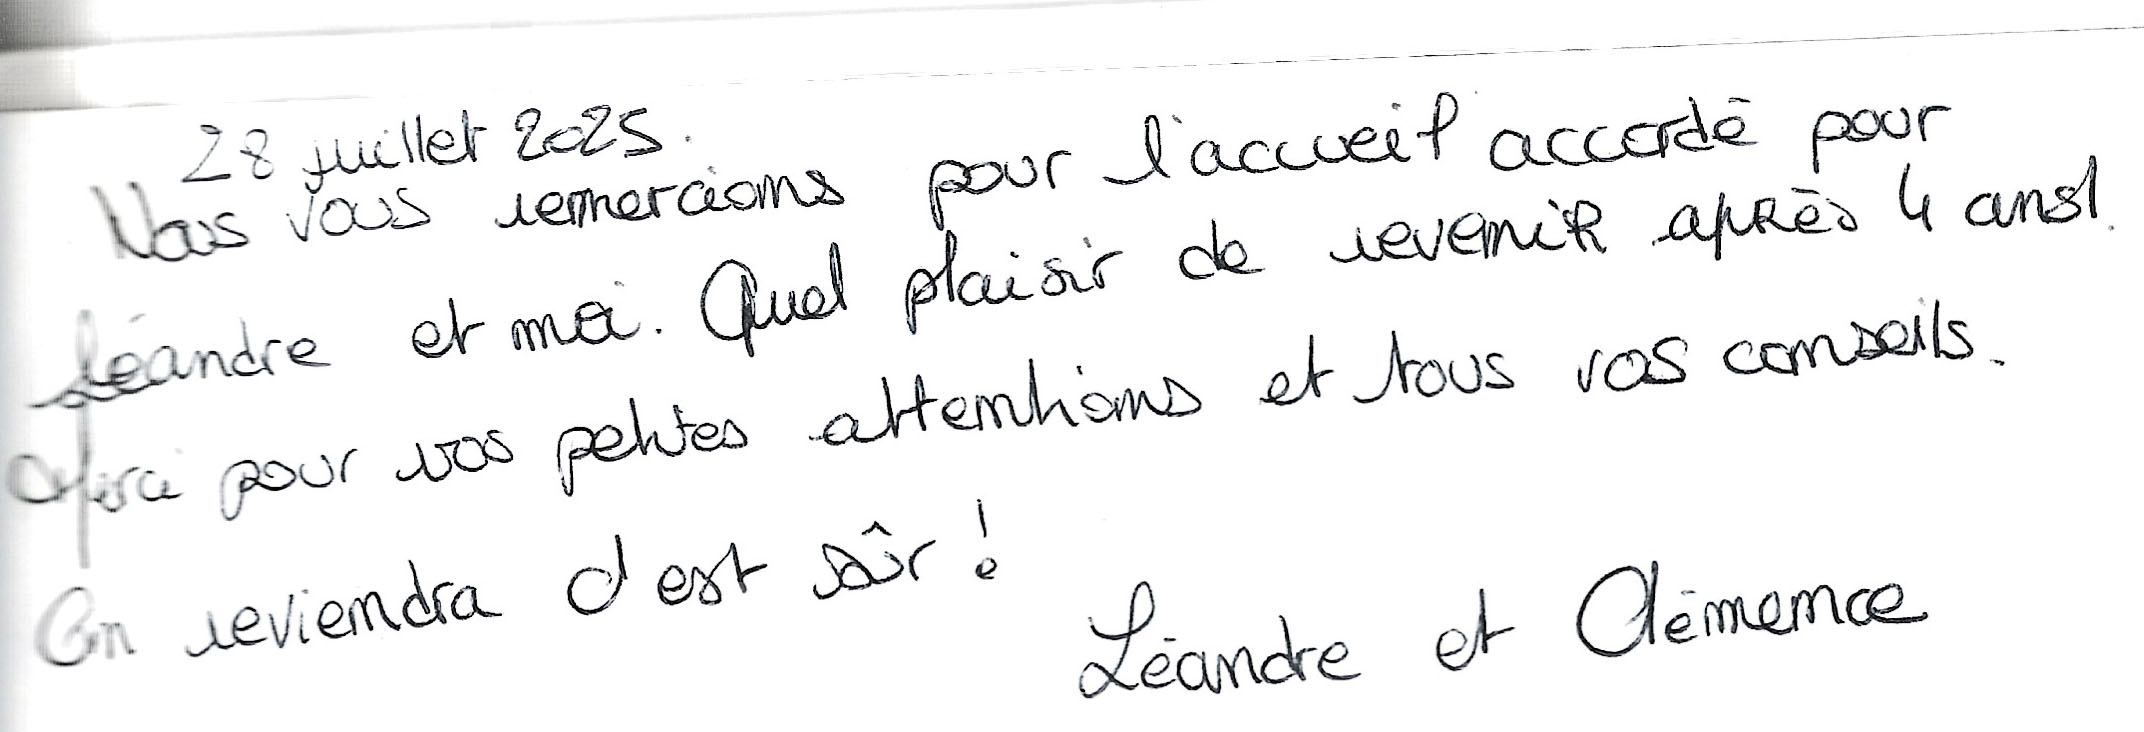 28 juillet 2025.
Nous vous remercions pour l'accueil accordé pour
Léandre et moi. Quel plaisir de revenir après 4 ans!
Merci pour vos petites attentions et tous vos conseils.
On reviendra c'est sûr !
Léandre et Clémence